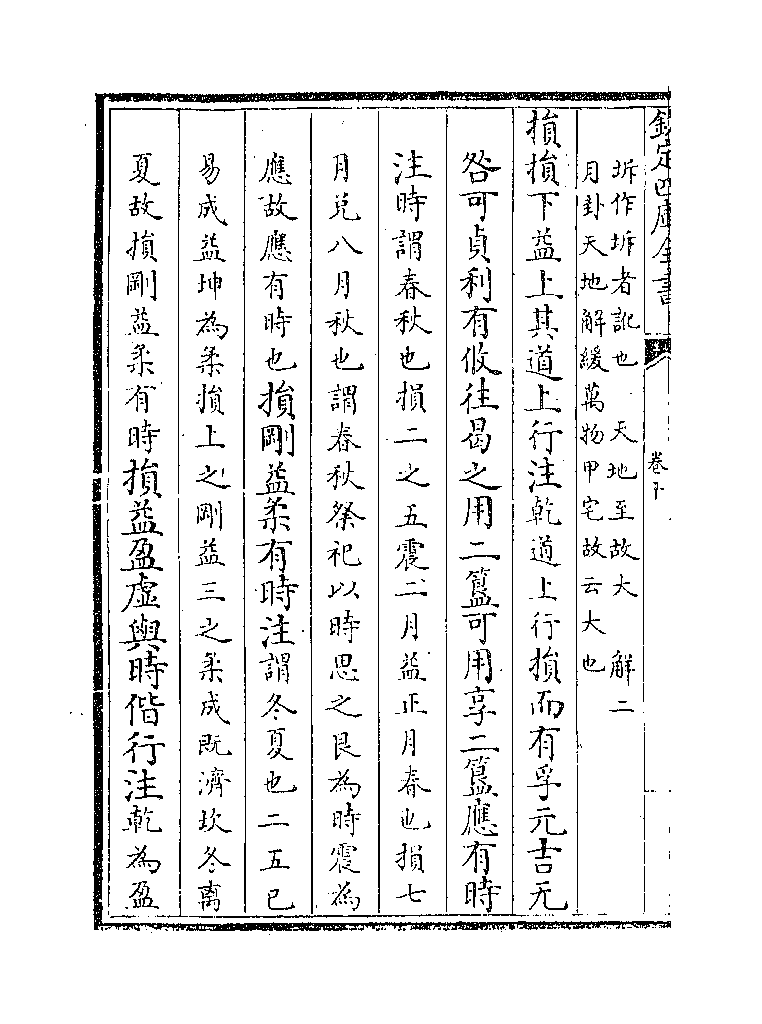 欽定四庫全書
卷十
坼作坼者訛也　天地至故大　解二
月卦天地解緩萬物甲宅故云大也
損損下益上其道上行注乾道上行損而有孚元吉无
咎可貞利有攸往曷之用二簋可用享二簋應有時
注時謂春秋也損二之五震二月益正月春也損七
月兌八月秋也謂春秋祭祀以時思之艮為時震為
應故應有時也損剛益柔有時注謂冬夏也二五已
易成益坤為柔損上之剛益三之柔成既濟坎冬离
夏故損剛益柔有時損益盈虛與時偕行注乾為盈